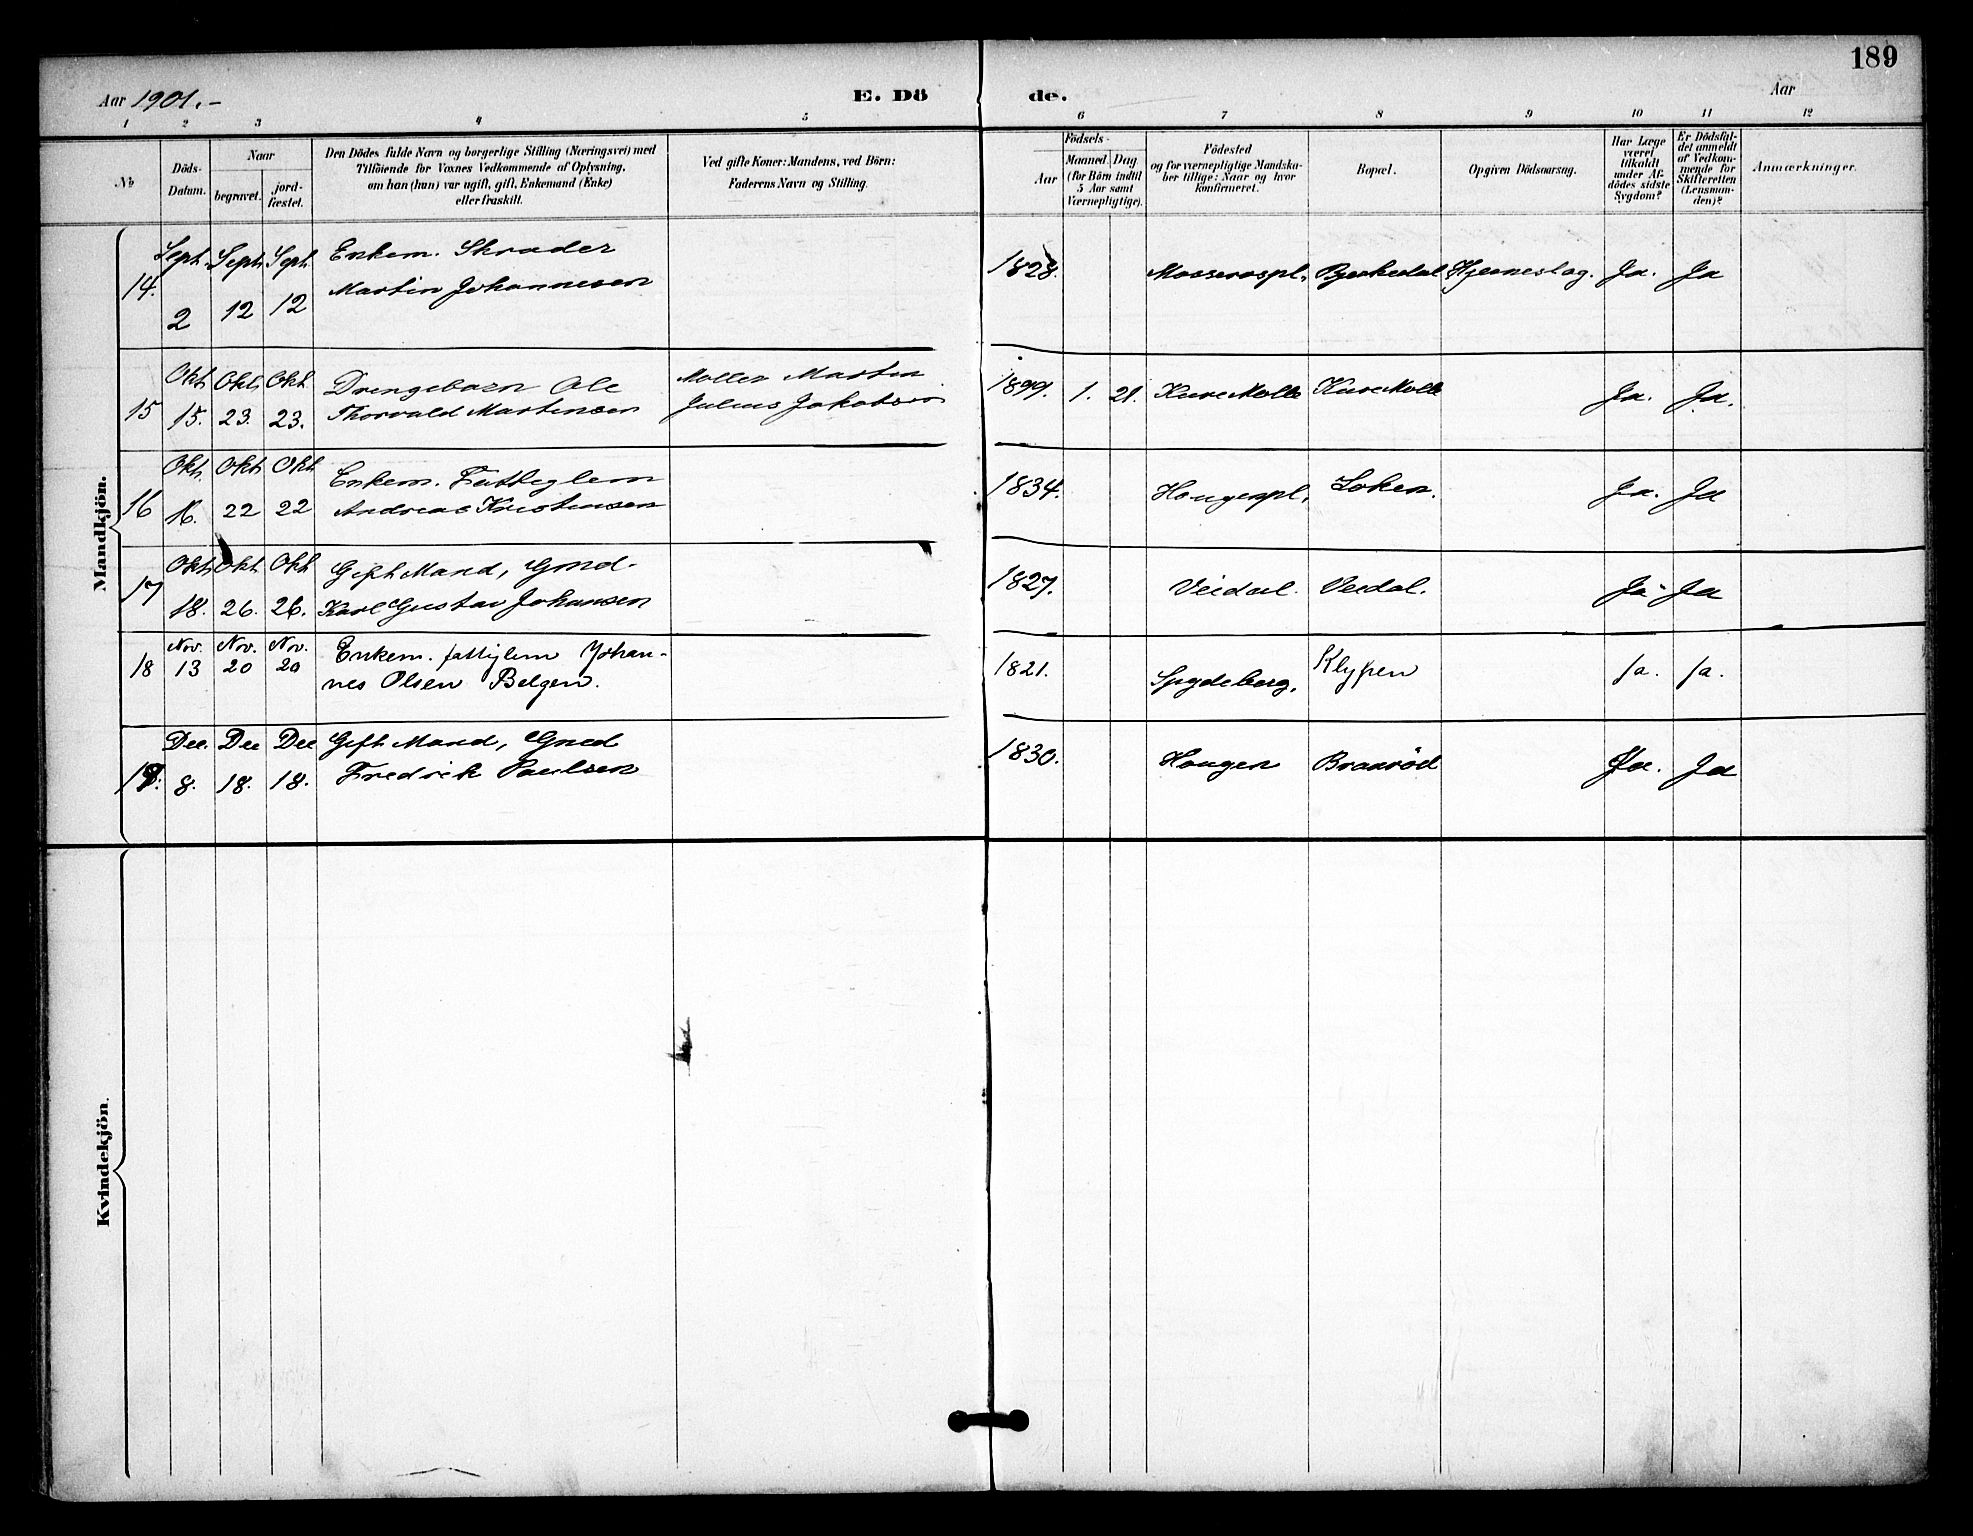 189
Aar 1901.-
E. Dö de.
Aar
1 2 3 4 5 6 7 8 9 10 11 12
No
Döds-
Datum.
Naar
begravet.
jord-
fæstet.
Den Dödes fulde Navn og borgerlige Stilling (Næringsvei) med
Tilföiende for Voxnes Vedkommende af Oplysning,
om han (hun) var ugift, gift, Enkemand (Enke)
eller fraskilt.
Ved gifte Koner: Mandens, ved Börn:
Faderens Navn og Stilling.
Födsels-
Aar
Maaned. Dag
(for Börn indtil
5 Aar samt
Værnepligtige).
Födested
og for værnepligtige Mandska-
ber tillige: Naar og hvor
konfirmeret.
Bopæl.
Opgiven Dödsaarsag.
Har Læge
været
tilkaldt
under Af-
dödes sidste
Sygdom?
Er Dödsfal-
det anmeldt
af Vedkom-
mende for
Skifteretten
(Lensman-
den)?
Anmærkninger.
Mandkjön.
14. Sept. 2 Sept. 12 Sept. 12 Enkem. Skræder
Martin Johannesen
1828. Mosserospl. Bjerkedal Hjerneslag. Ja. Ja
15 Okt. 15. Okt. 23. Okt. 23. Drengebarn Ole
Thorvald Martinsen
Møller Martin
Julius Jakobsen
1899. 1. 21. Kure Mølle Kure Mølle Ja. Ja.
16 Okt. 16. Okt. 22 Okt. 22 Enkem. Fattiglem
Andreas Kristiansen
1834. Haugerspl. Løken. Ja. Ja
17 Okt. 18. Okt. 26. Okt. 26. Gift Mand, Gmd.
Karl Gustav Johansen
1827. Veidal. Veidal. Ja Ja
18 Nov. 13 Nov. 20 Nov. 20 Enkem. fattiglem Johan-
nes Olsen Belgen.
1821. Spydeberg. Klypen ja. ja.
19. Dec. 8. Dec 18. Dec 18. Gift Mand, Gmd
Fredrik Paulsen
1830. Haugen Braarød Ja. Ja
Kvindekjön.